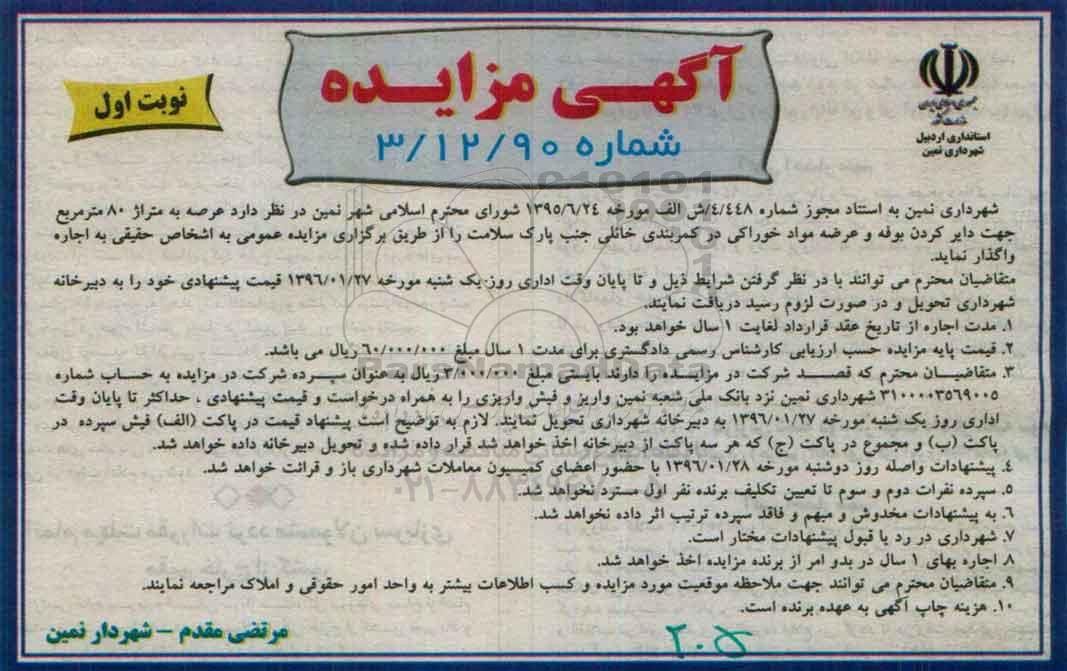 جمهوری اسلامی ایران
وزارت کشور
استانداری اردبیل
شهرداری نمین
آگهی مزایده
شماره ۳/۱۲/۹۰
نوبت اول
شهرداری نمین به استناد مجوز شماره ۴/۴۴۸/ش الف مورخه ۱۳۹۵/۶/۲۴ شورای محترم اسلامی شهر نمین در نظر دارد عرصه به متراژ ۸۰ مترمربع
جهت دایر کردن بوفه و عرضه مواد خوراکی در کمربندی خائلی جنب پارک سلامت را از طریق برگزاری مزایده عمومی به اشخاص حقیقی به اجاره
واگذار نماید.
متقاضیان محترم می توانند با در نظر گرفتن شرایط ذیل و تا پایان وقت اداری روز یک شنبه مورخه ۱۳۹۶/۰۱/۲۷ قیمت پیشنهادی خود را به دبیرخانه
شهرداری تحویل و در صورت لزوم رسید دریافت نمایند.
۱. مدت اجاره از تاریخ عقد قرارداد لغایت ۱ سال خواهد بود.
۲. قیمت پایه مزایده حسب ارزیابی کارشناس رسمی دادگستری برای مدت ۱ سال مبلغ ۶۰/۰۰۰/۰۰۰ ریال می باشد.
۳. متقاضیان محترم که قصد شرکت در مزایده را دارند بایستی مبلغ ۳/۰۰۰/۰۰۰ ریال به عنوان سپرده شرکت در مزایده به حساب شماره
۳۱۰۰۰۰۳۵۶۹۰۰۵ شهرداری نمین نزد بانک ملی شعبه نمین واریز و فیش واریزی را به همراه درخواست و قیمت پیشنهادی ، حداکثر تا پایان وقت
اداری روز یک شنبه مورخه ۱۳۹۶/۰۱/۲۷ به دبیرخانه شهرداری تحویل نمایند. لازم به توضیح است پیشنهاد قیمت در پاکت (الف) فیش سپرده در
پاکت (ب) و مجموع در پاکت (ج) که هر سه پاکت از دبیرخانه اخذ خواهد شد قرار داده شده و تحویل دبیرخانه داده خواهد شد.
۴. پیشنهادات واصله روز دوشنبه مورخه ۱۳۹۶/۰۱/۲۸ با حضور اعضای کمیسیون معاملات شهرداری باز و قرائت خواهد شد.
۵. سپرده نفرات دوم و سوم تا تعیین تکلیف برنده نفر اول مسترد نخواهد شد.
۶. به پیشنهادات مخدوش و مبهم و فاقد سپرده ترتیب اثر داده نخواهد شد.
۷. شهرداری در رد یا قبول پیشنهادات مختار است.
۸. اجاره بهای ۱ سال در بدو امر از برنده مزایده اخذ خواهد شد.
۹. متقاضیان محترم می توانند جهت ملاحظه موقعیت مورد مزایده و کسب اطلاعات بیشتر به واحد امور حقوقی و املاک مراجعه نمایند.
۱۰. هزینه چاپ آگهی به عهده برنده است.
مرتضی مقدم – شهردار نمین
۲۰۵